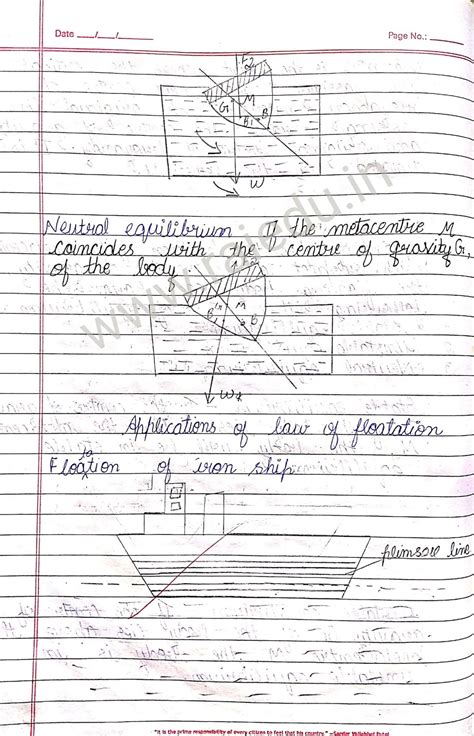 Date __/__/__
Page No.:
F2
G M
B1 B
W
Neutral equilibrium If the metacentre M
coincides with the centre of gravity G,
of the body.
M
B' B
W
Applications of law of floatation
Floatation of iron ship
plimsole line
www.rajedu.in
"It is the prime responsibility of every citizen to feel that his country." –Sardar Vallabhbhai Patel